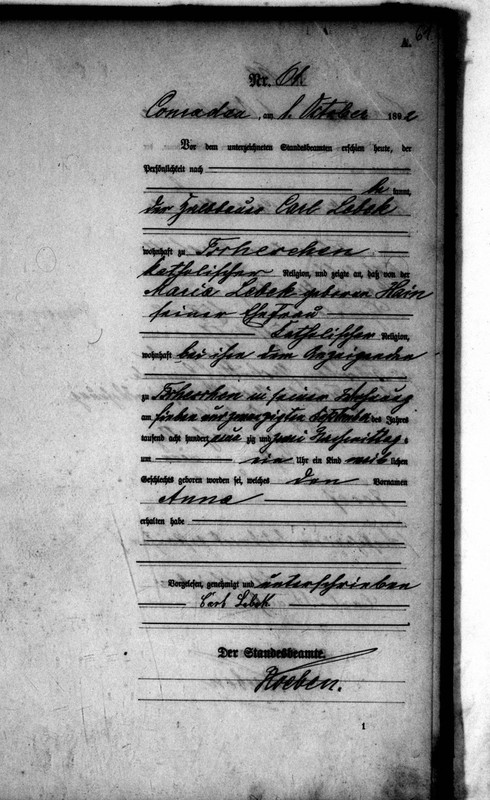 A.
61
Nr. 61.
Conradau, am 1. October 1892
Vor dem unterzeichneten Standesbeamten erschien heute, der
Persönlichkeit nach
be kannt,
der Halbbauer Carl Lebek
wohnhaft zu
katholischer Religion, und zeigte an, daß von der
Maria Lebek geborene Hain
seiner Ehefrau
katholischer Religion,
wohnhaft bei ihm dem Anzeigenden
zu in seiner Wohnung
am sieben und zwanzigsten September des Jahres
tausend acht hundert neun zig und zwei Nachmittags
um ein Uhr ein Kind weib lichen
Geschlechts geboren worden sei, welches den Vornamen
Anna
erhalten habe
Vorgelesen, genehmigt und unterschrieben
Carl Lebek
Der Standesbeamte.
1